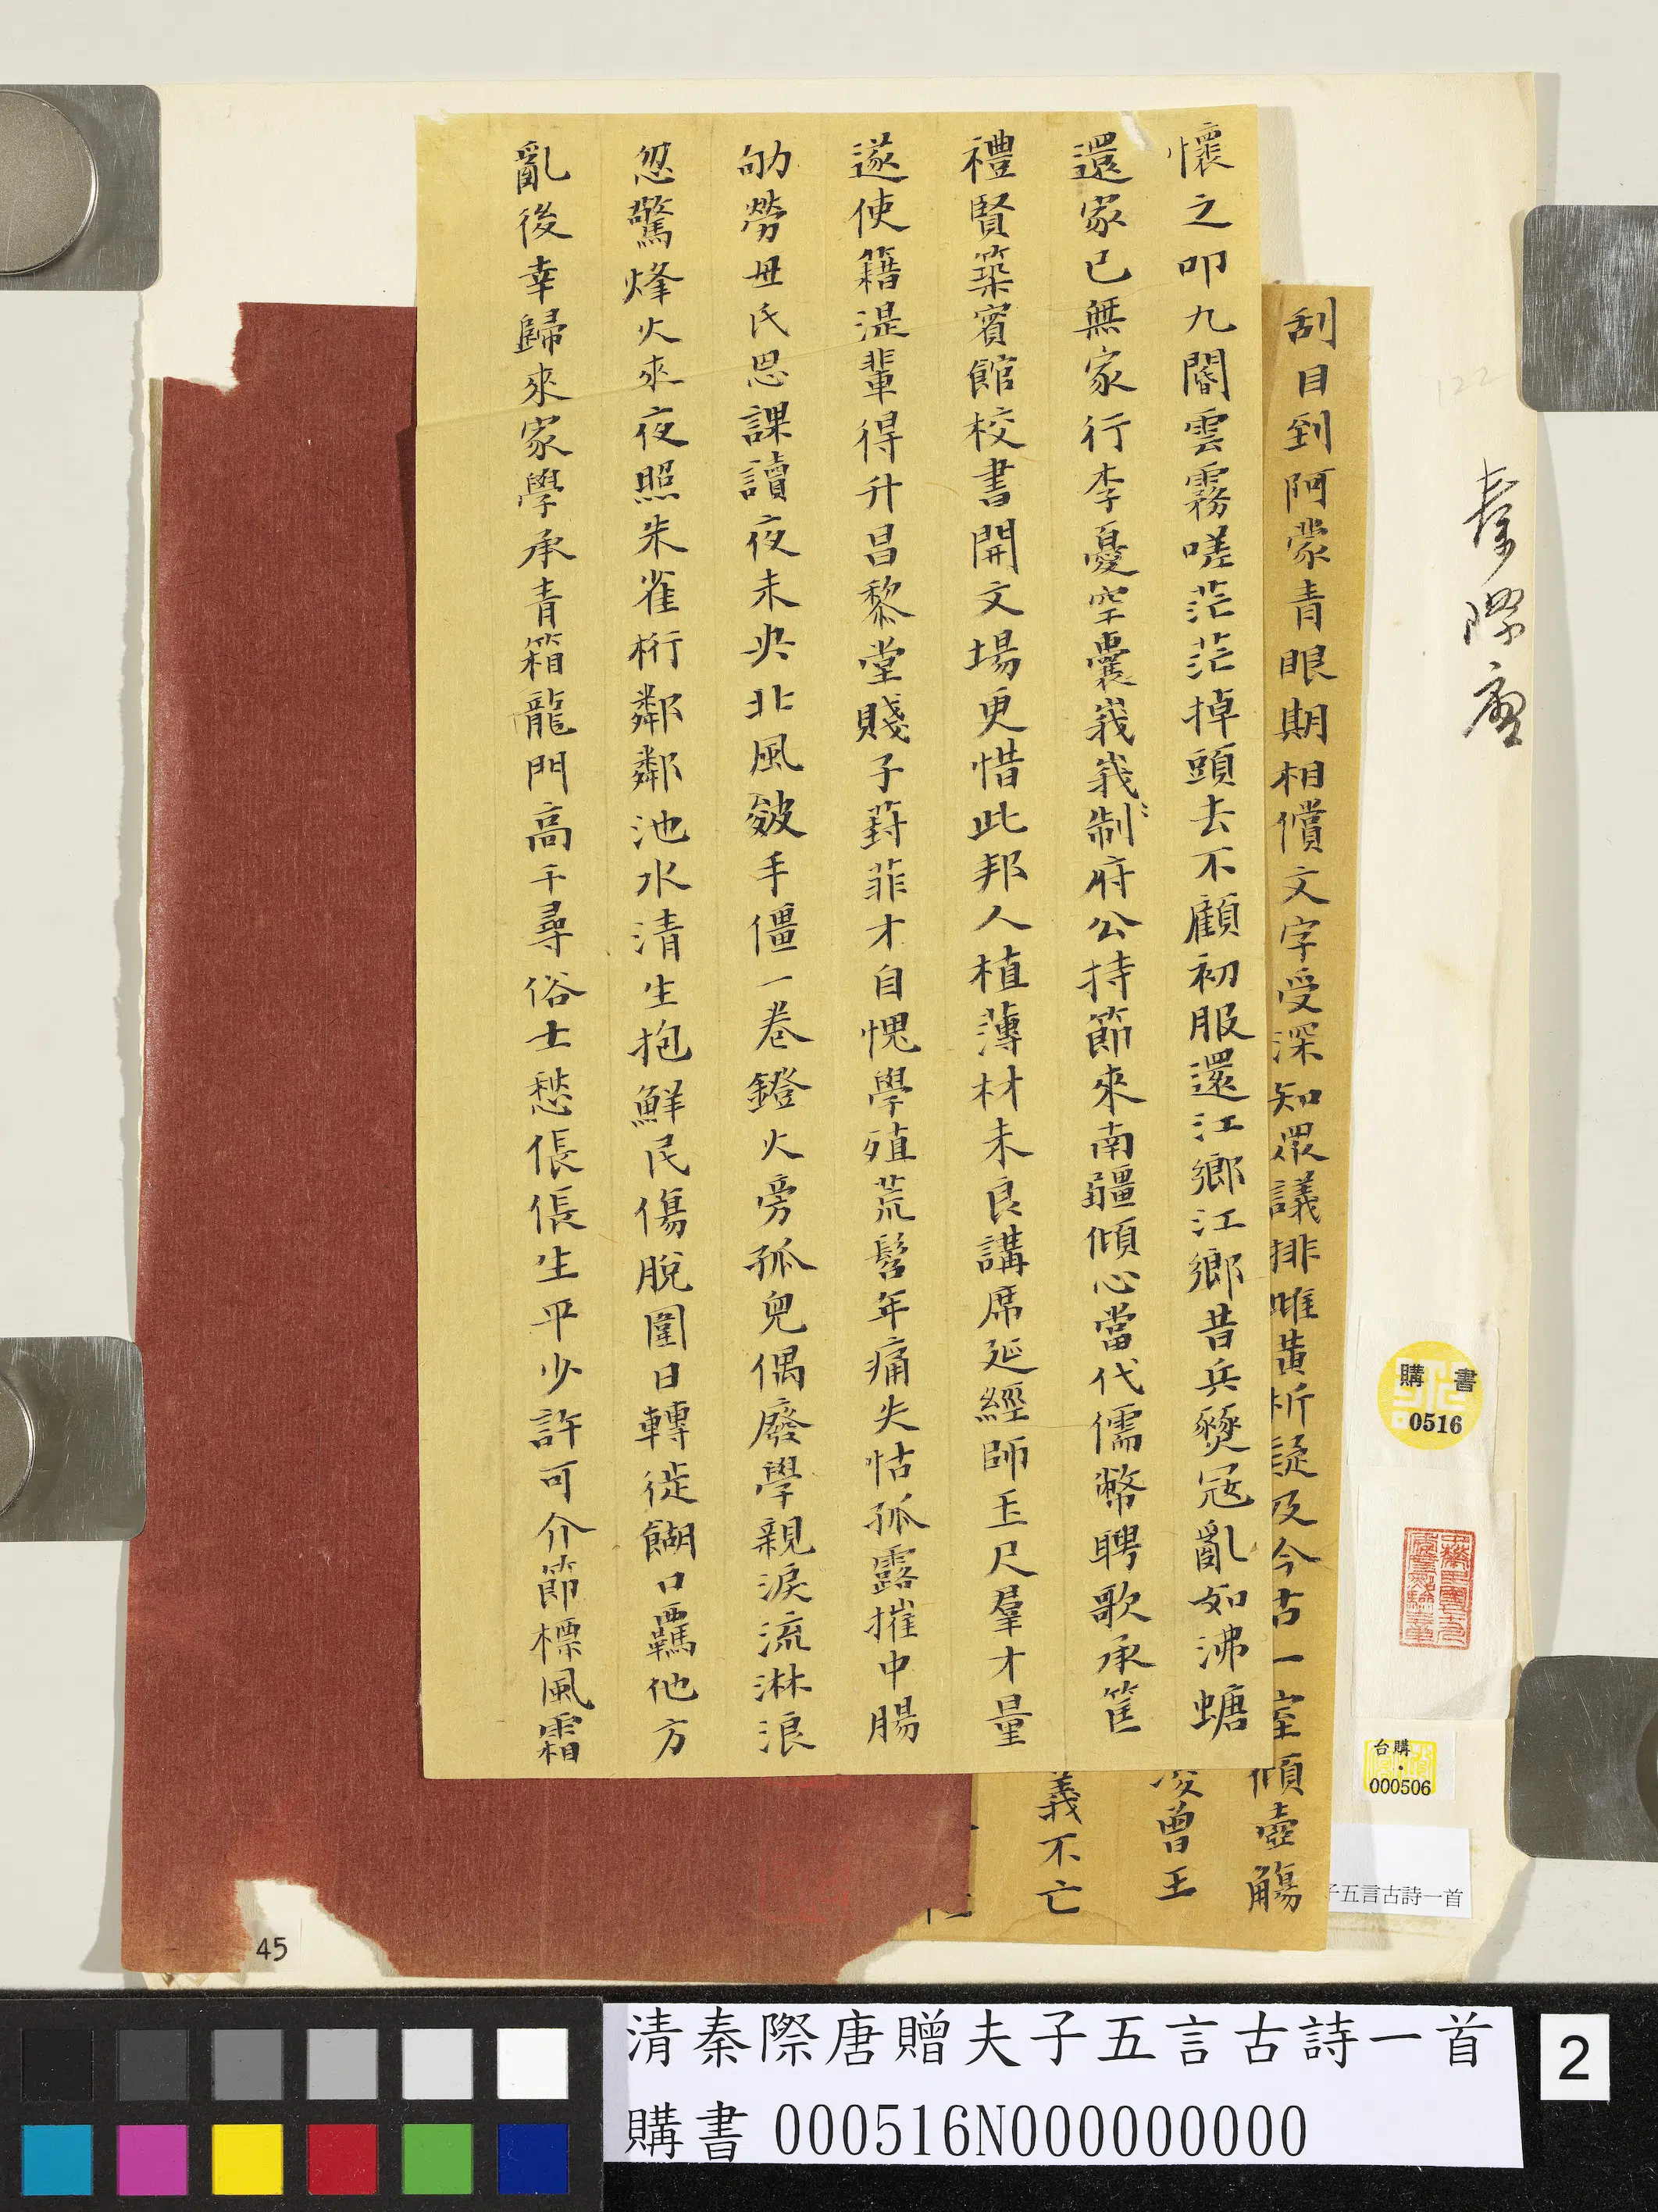 秦際唐
刮目到阿蒙青眼期相償文字受深知眾議排雌黃析疑及今古一室傾壺觴
懷之叩九閽雲霧嗟茫茫掉頭去不顧初服還江鄉江鄉昔兵燹寇亂如沸螗
還家已無家行李憂空囊峩峩制府公持節來南疆傾心當代儒幣聘歌承筐
禮賢築賓館校書開文場更惜此邦人植薄材未良講席延經師玉尺羣才量
遂使籍湜輩得升昌黎堂賤子葑菲才自愧學殖荒髫年痛失怙孤露摧中腸
劬勞母氏恩課讀夜未央北風皴手僵一卷鐙火旁孤兒偶廢學親淚流淋浪
忽驚烽火來夜照朱雀桁鄰鄰池水清生抱鮮民傷脫圍日轉徙餬口羈他方
亂後幸歸來家學承青箱龍門高千尋俗士愁倀倀生平少許可介節標風霜
曾王
義不亡
購書
0516
台購
000506
子五言古詩一首
45
清秦際唐贈夫子五言古詩一首
購書 000516N000000000
2